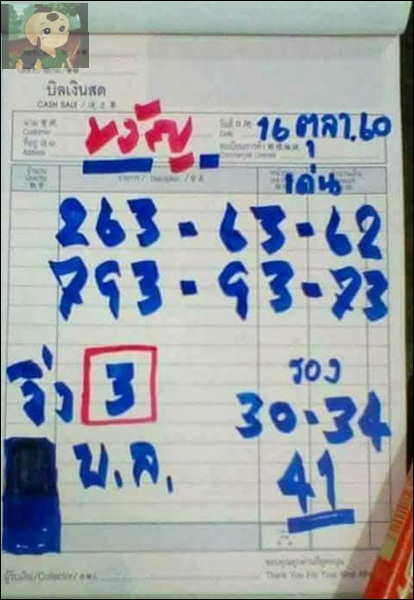 บิลเงินสด
CASH SALE /
นาม
Customer
วันที่
Date
16 ตุลา.60
ที่อยู่
Address
ขวัญ
ทะเบียนการค้า
Commercial License
จำนวน
Quantity
รายการ / Description /
เด่น
263 - 63 - 62
793 - 93 - 73
วิ่ง 3
รอง
30 - 34
บ.ล.
41
ผู้รับเงิน/Collector/
ขอบคุณทุกท่านที่อุดหนุน
Thank You For Your Kind